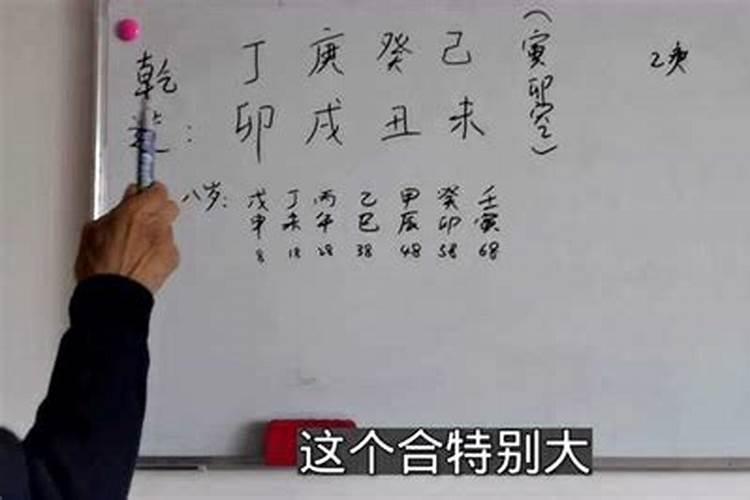 乾 丁 庚 癸 己 (寅卯空) 乙庚
造: 卯 戌 丑 未
八岁: 戊 丁 丙 乙 甲 癸 壬
申 未 午 巳 辰 卯 寅
8 18 28 38 48 58 68
这个合特别大